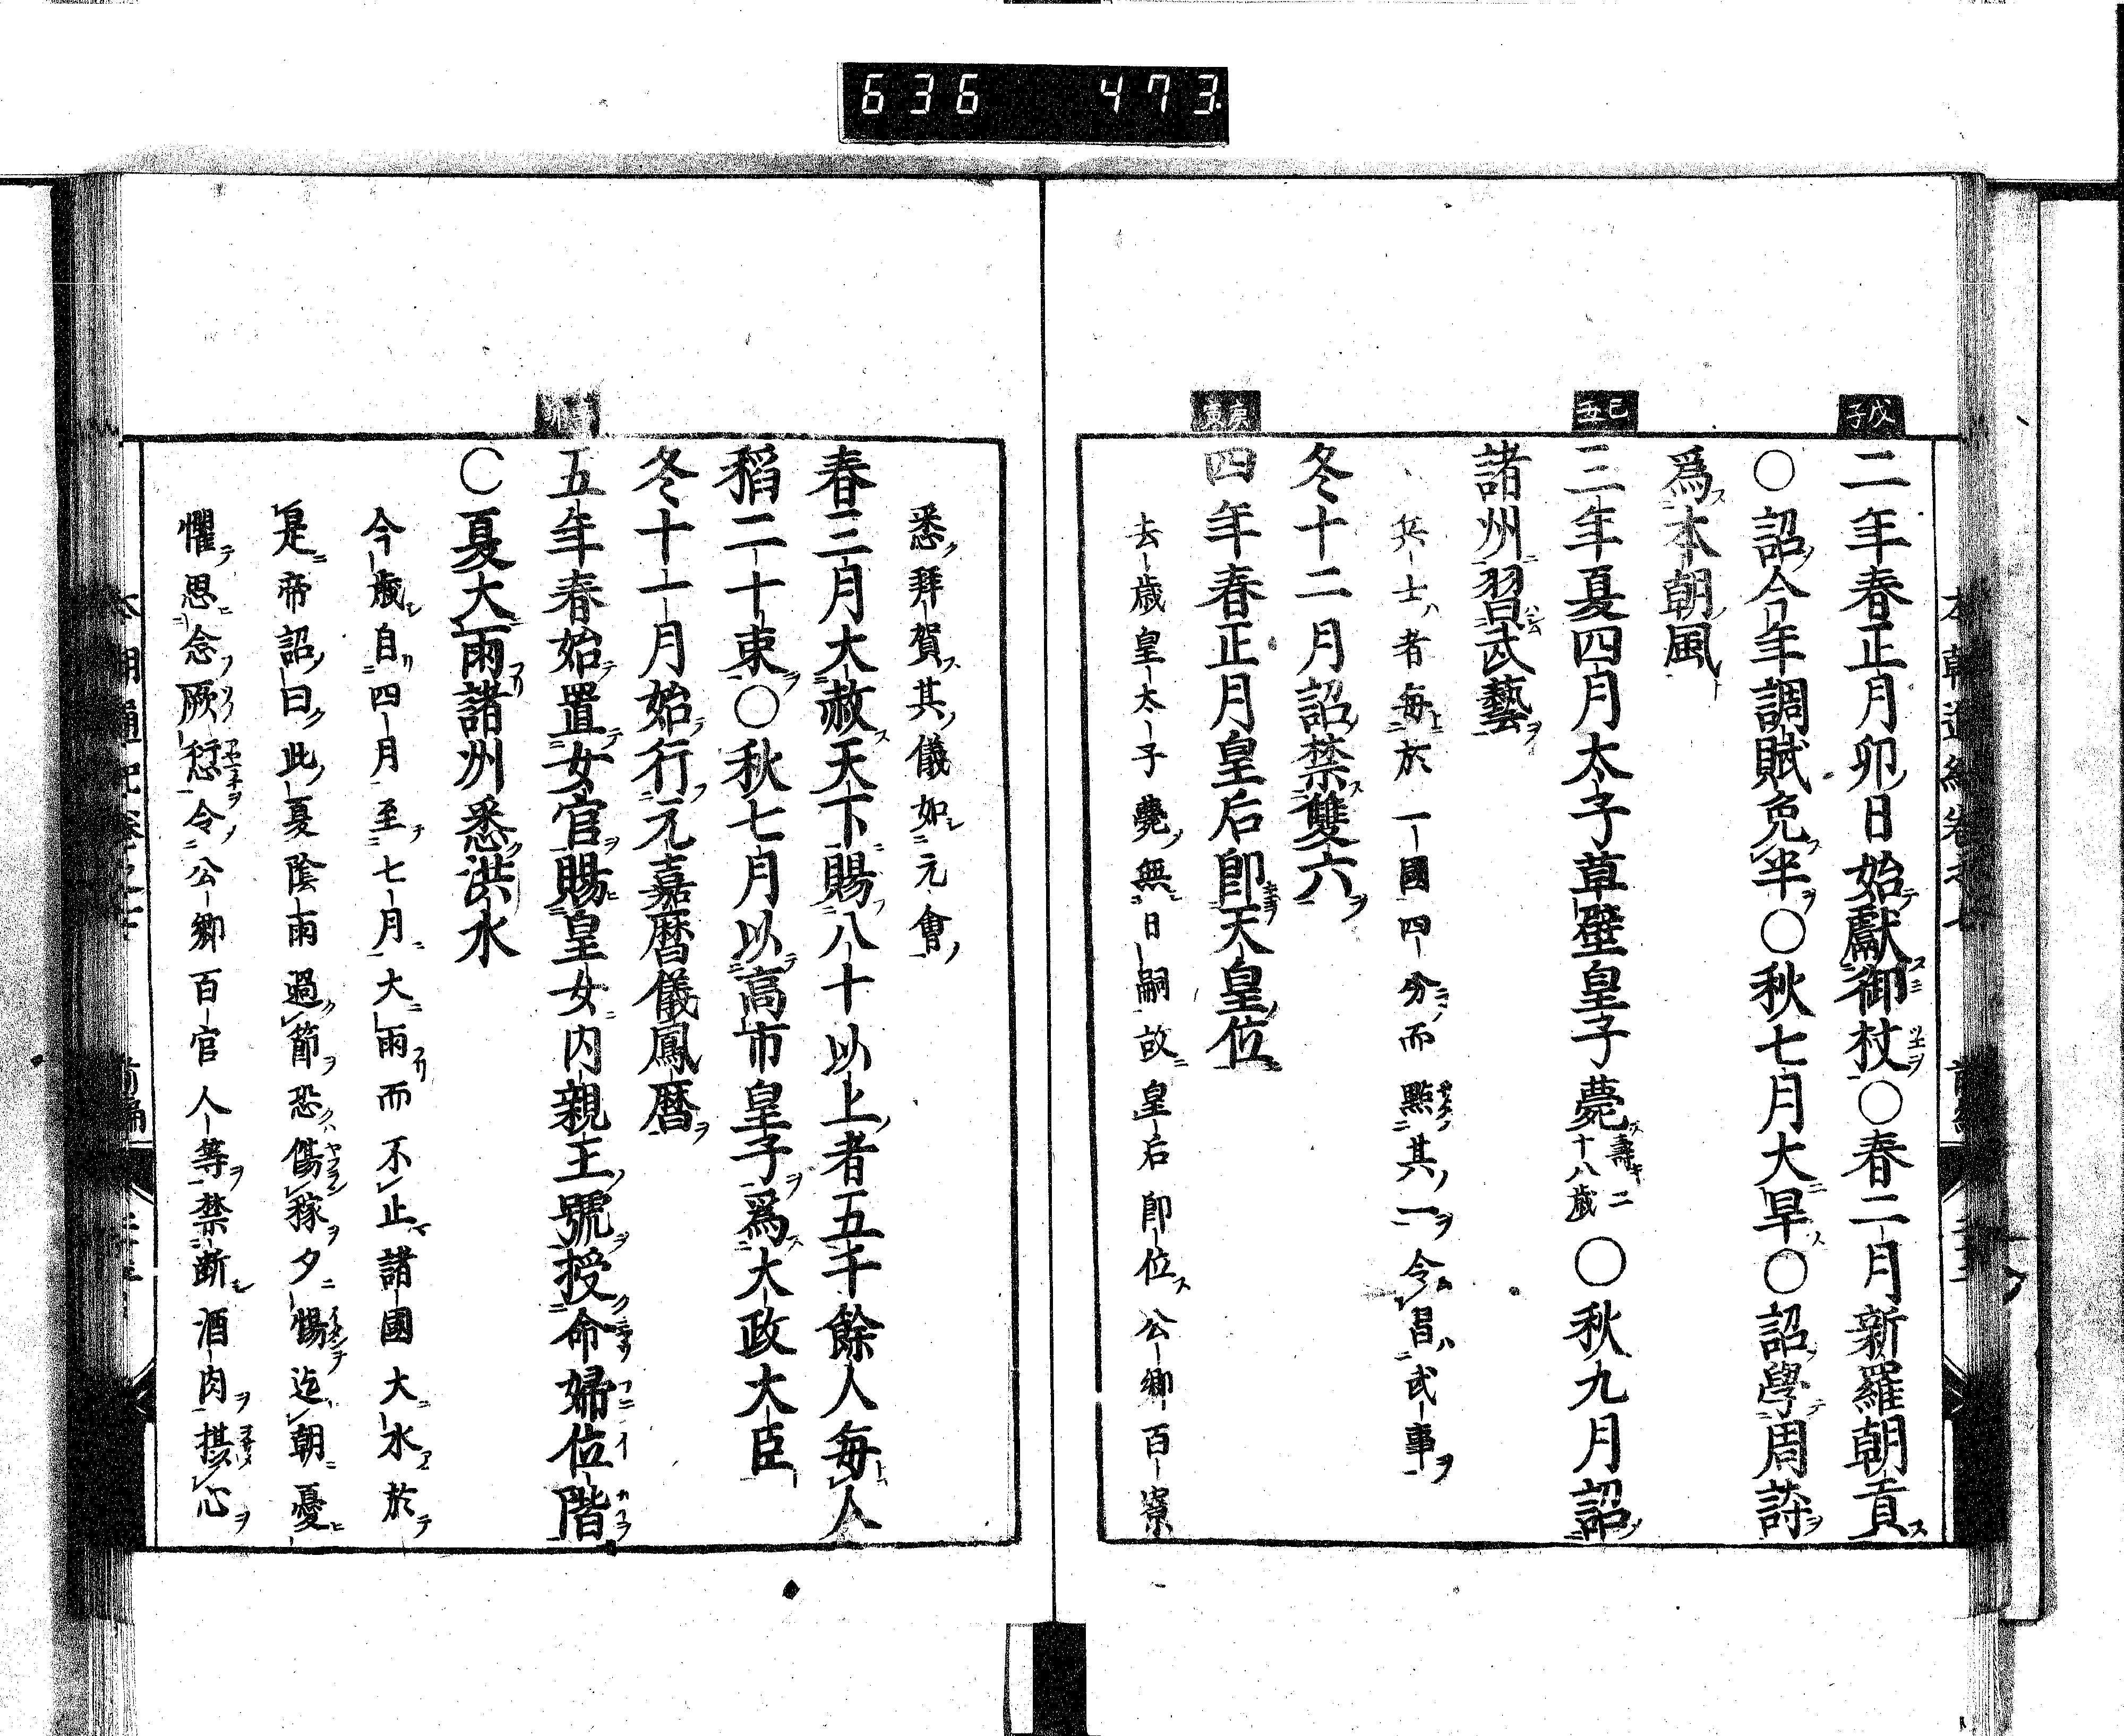 636 473
戊子
二年春正月卯日始獻御杖○春二月新羅朝貢
○詔今年調賦免半○秋七月大旱○詔學周詩
爲本朝風
己丑
三年夏四月太子草壁皇子薨壽二十八歳○秋九月詔
諸州習武藝
兵士者毎於一國四分而點其一令昌武事
冬十二月詔禁雙六
庚寅
四年春正月皇后卽天皇位
去歳皇太子薨無日嗣故皇后卽位公卿百寮
悉拜賀其儀如元會
春三月大赦天下賜八十以上者五千餘人毎人
稻二十束○秋七月以高市皇子爲大政大臣
冬十一月始行元嘉曆儀鳳曆
五年春始置女官賜皇女内親王號授命婦位階
○夏大雨諸州悉洪水
今歳自四月至七月大雨而不止諸國大水於
是帝詔曰此夏陰雨過節恐傷稼夕惕迄朝憂
懼思念厥愆令公卿百官人等禁斷酒肉攝心